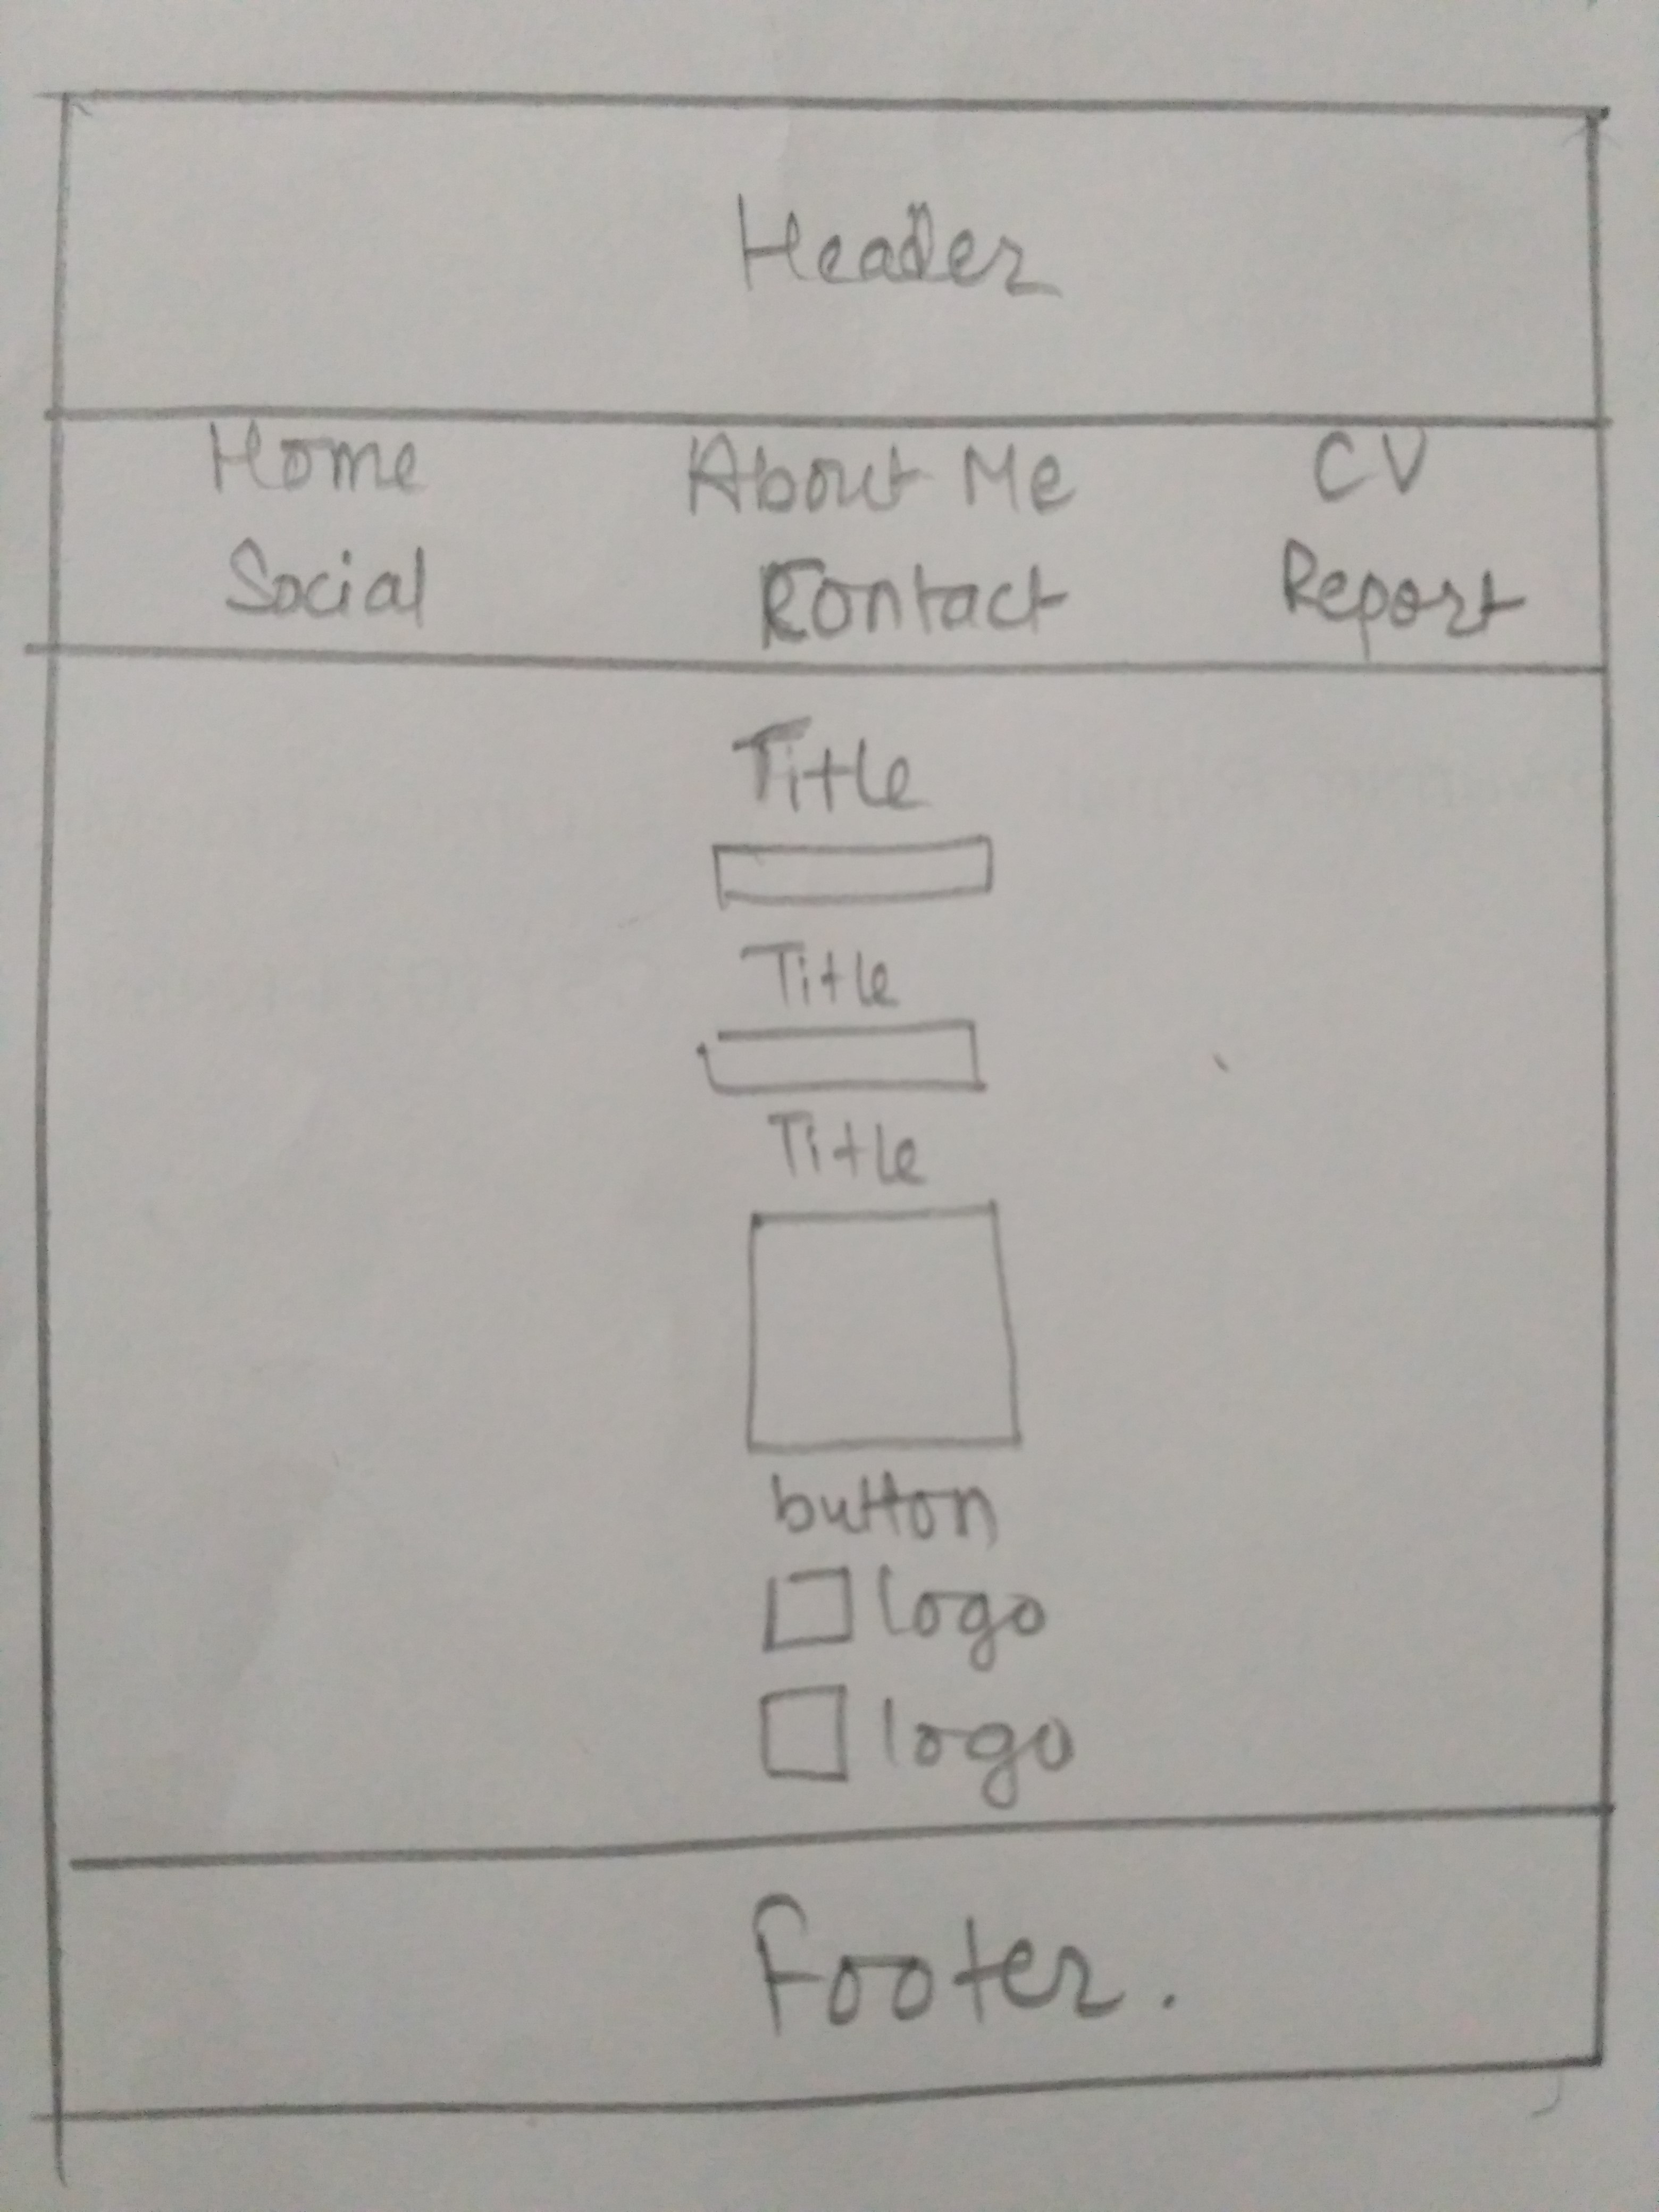 Header
Home About Me CV
Social Contact Report
Title
Title
Title
button
logo
logo
Footer.